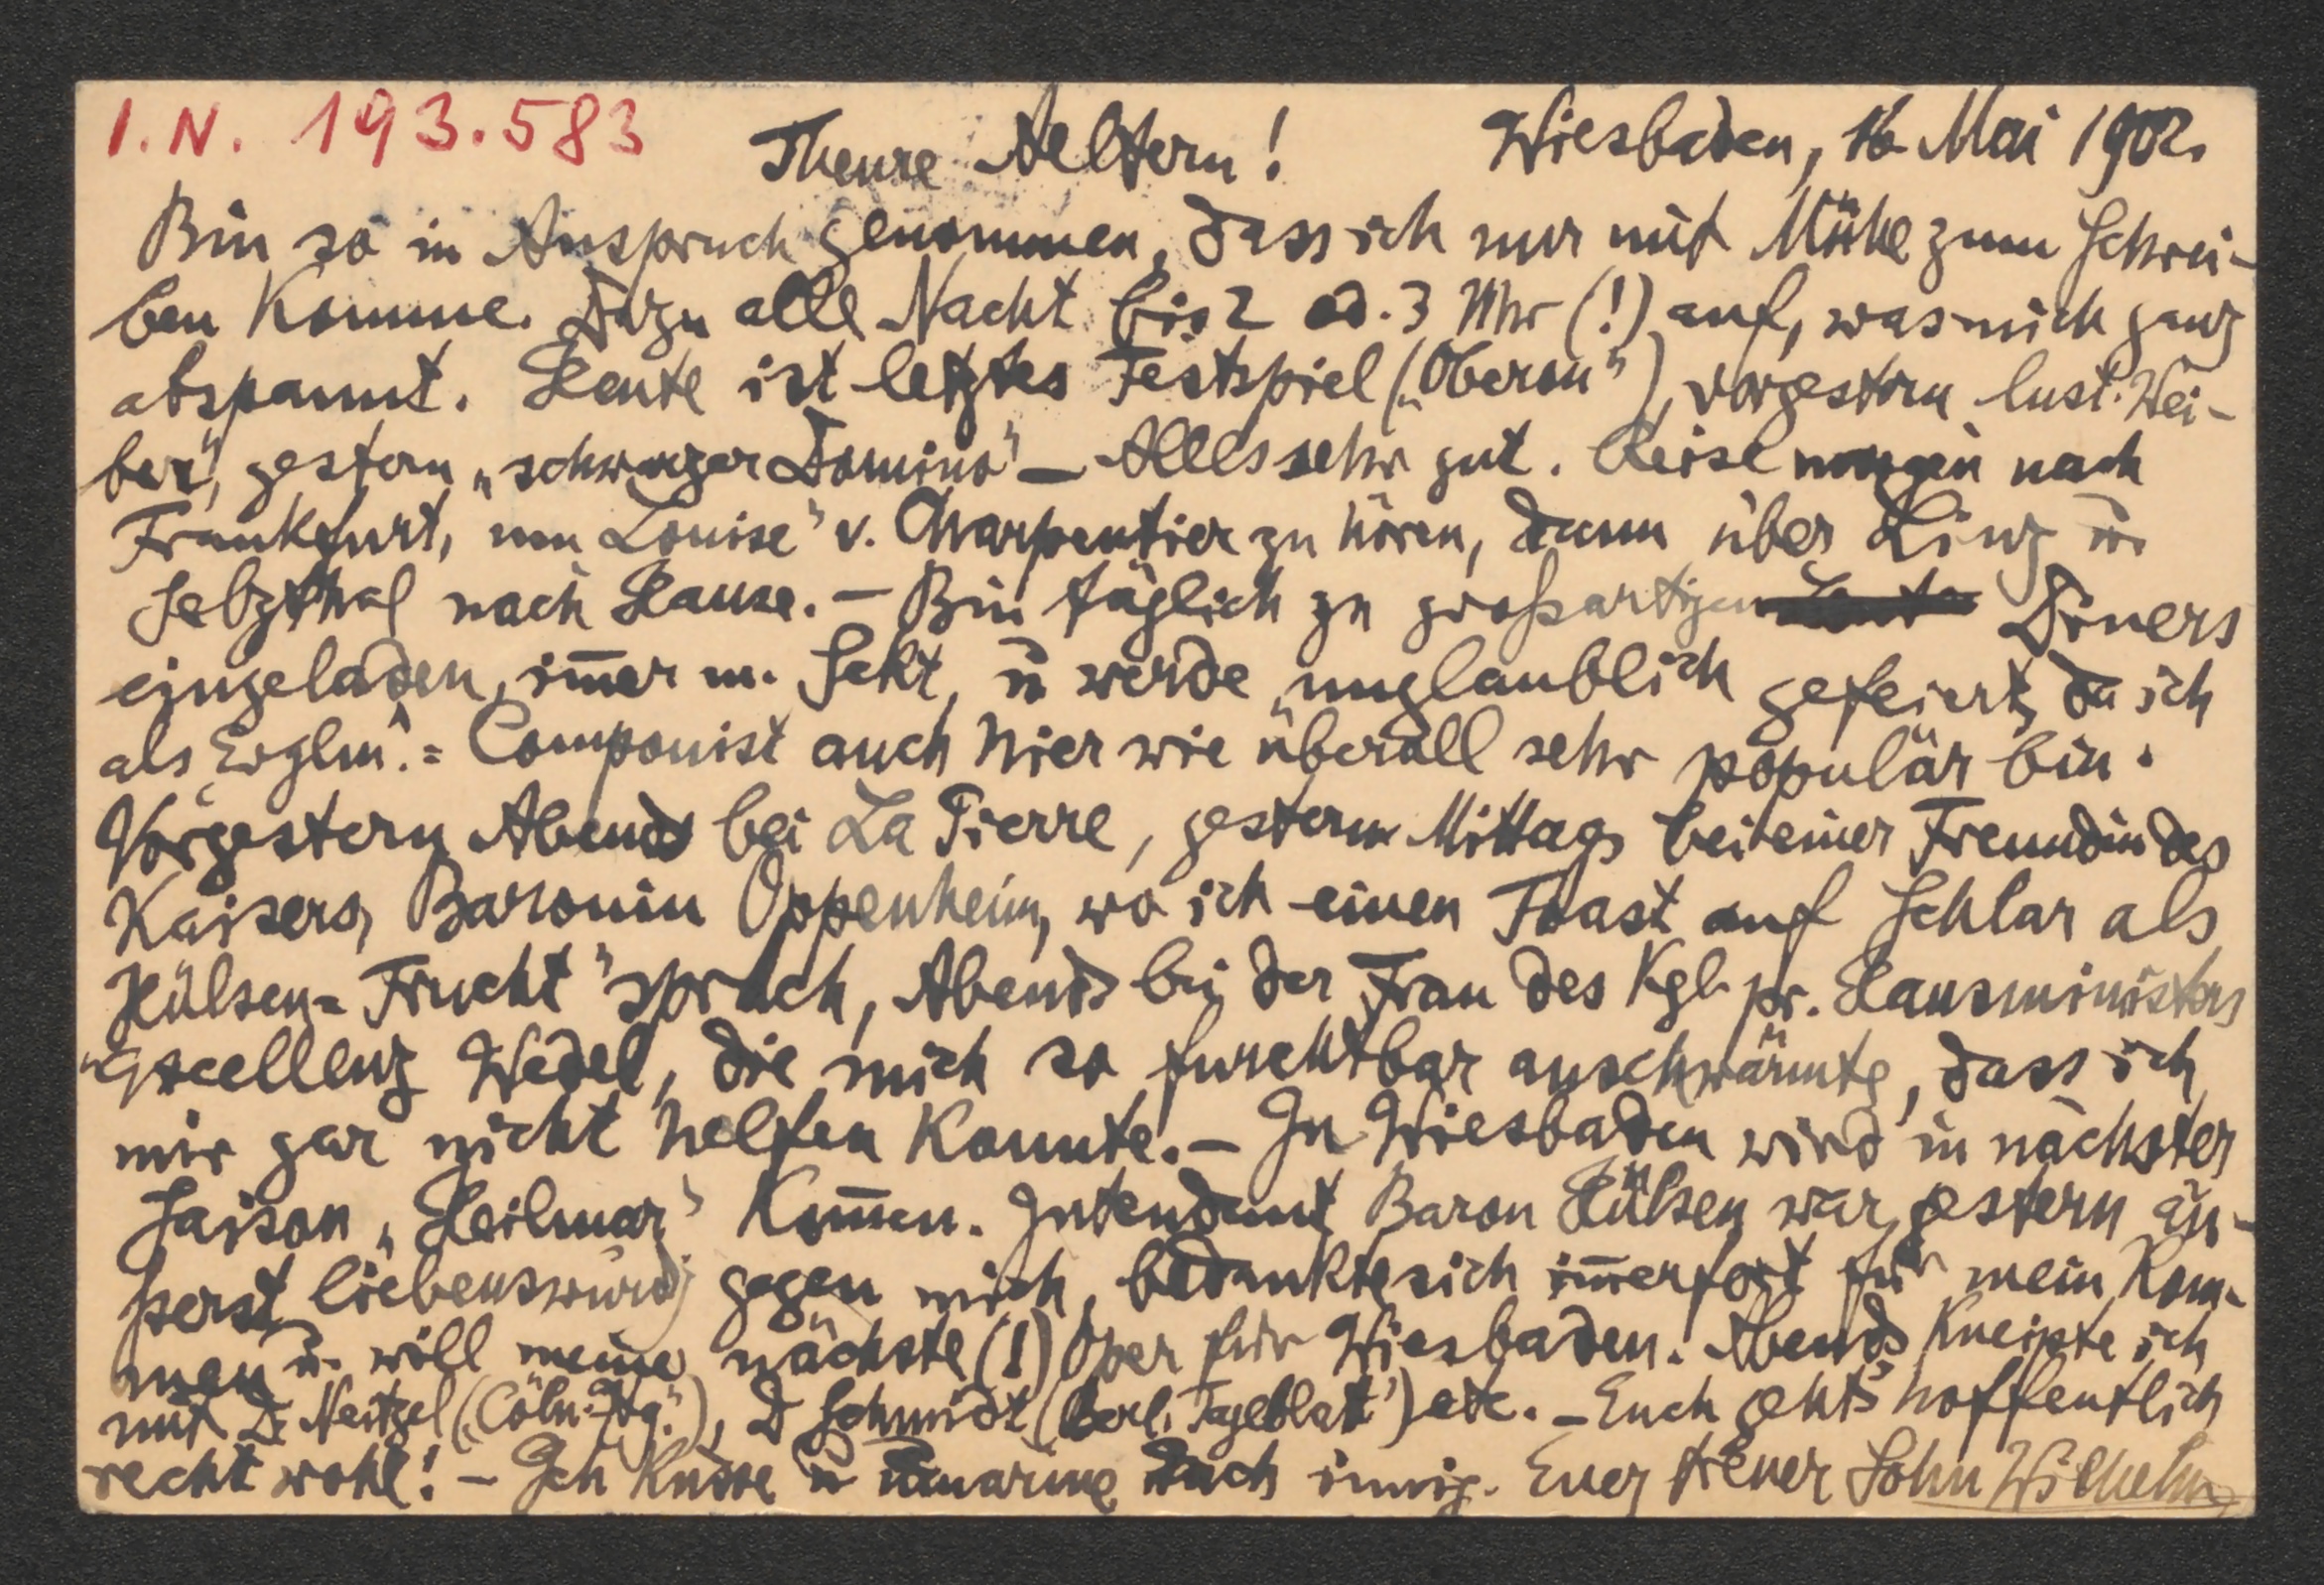 I.N. 193.583
Theure Aeltern! Wiesbaden, 16. Mai 1902.
Bin so in Anspruch genommen, dass ich nur mit Mühe zum Schrei-
ben komme. Dazu alle Nacht bis 2 od. 3 Uhr (!) auf, was mich ganz
abspannt. Heute ist letztes Festspiel („Oberon"), vorgestern lust. Wei-
ber", gestern „schwarzer Domino" – Alles sehr gut. Reise morgen nach
Frankfurt, um Louise" v. Charpentier zu hören, dann über Linz u.
Selzthal nach Hause. – Bin täglich zu großartigen Diners
eingeladen, im̅er m. Sekt, u werde „unglaublich gefeiert, da ich
als Evglm." = Componist auch hier wie überall sehr populär bin.
Vorgestern Abends bei La Pierre, gestern Mittags bei einer Freundin des
Kaisers, Baronin Oppenheim, wo ich einen Toast auf Schlar als
Hülsen=Frucht" sprach, Abends bei der Frau des Kgl. pr. Hausministers
Excellenz Wedel, die mich so furchtbar anschwärmte, dass ich
mir gar nicht helfen konnte. – In Wiesbaden wird in nächster
Saison „Heilmar" kom̅en. Intendant Baron Hülsen war gestern äu-
ßerst liebenswürdig gegen mich, bedankte sich im̅erfort für mein Kom-
men u. will meine nächste (!) Oper für Wiesbaden. Abends kneipte ich
mit Dr Neitzel („Cöln. Ztg."), D Schmidt (Berl. Tageblatt") etc. – Euch geht's hoffentlich
recht wohl! – Ich küsse u umarme Euch innig. Euer treuer Sohn Wilhelm